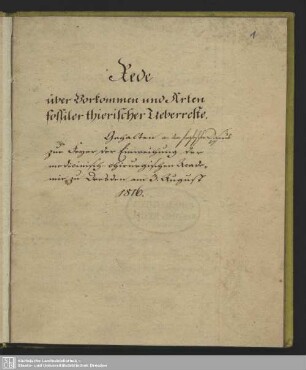 1
Rede
über Vorkommen und Arten
fossiler thierischer Ueberreste.
Gehalten
zur Feyer der Einweihung der
medicinisch chirurgischen Acade-
mie zu Dresden am 3. August
1816.
Sächsische Landesbibliothek -
Staats- und Universitätsbibliothek Dresden